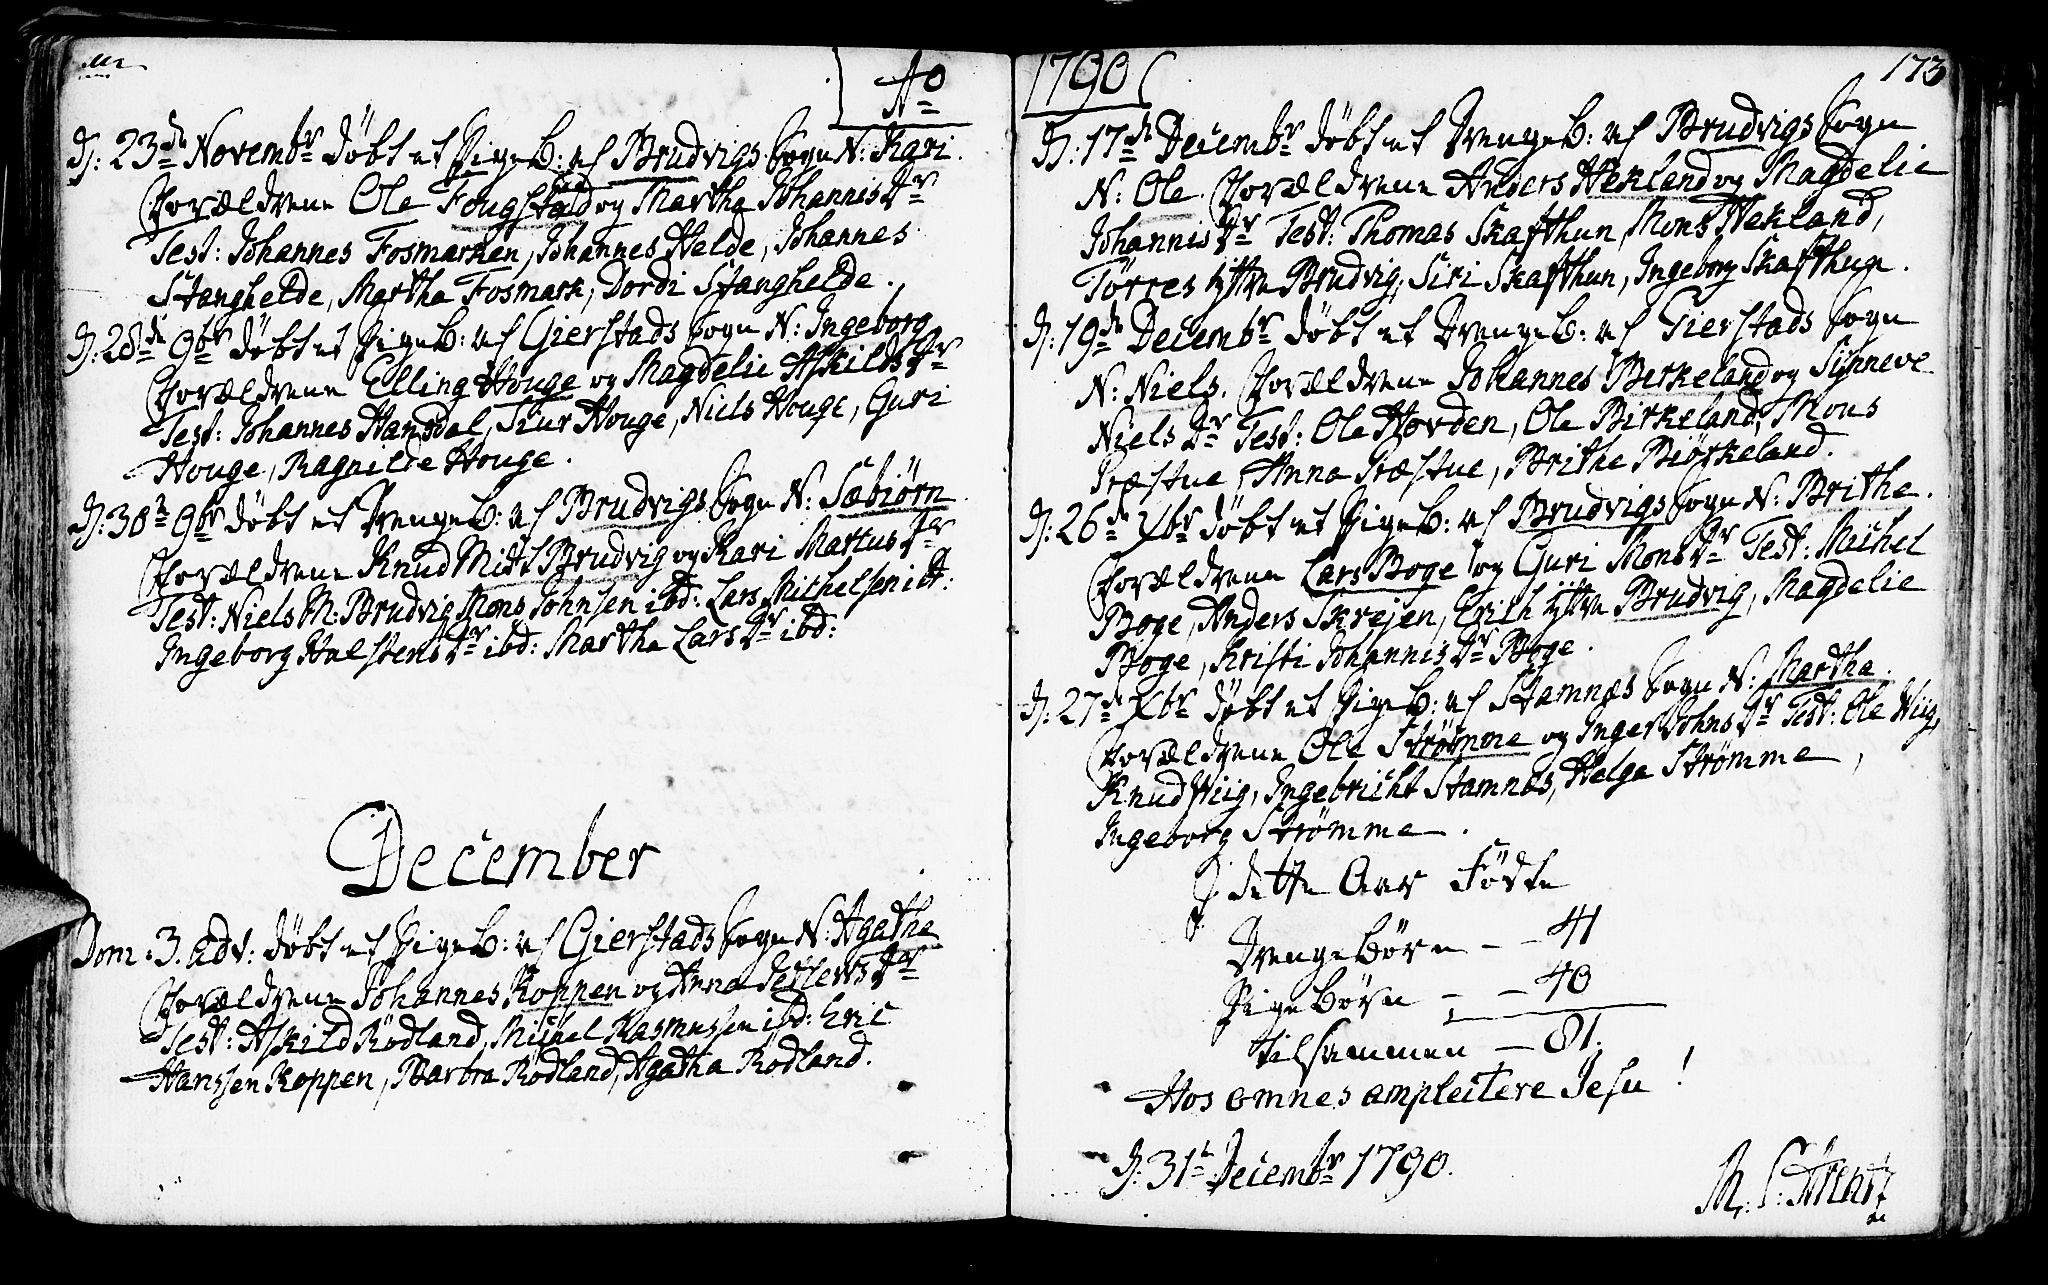 Ao
D: 23de Novembr døbt et PigeB: af Brudvigs Sogn N: Kari.
Forældrene Ole Fougstad og Martha JohannisDr
Test: Johannes Fosmarken, Johannes Helde, Johannes
Stanghelde, Martha Fosmark, Dordi Stanghelde.
D: 28de 9br døbt et PigeB: af Gierstads Sogn N: Ingeborg
Forældrene Elling Houge og Magdelie AskildsDr
Test: Johannes Hansdal, Tiur Houge, Niels Houge, Guri
Houge, Ragnilde Houge.
D: 30te 9br døbt et DrengeB: af Brudvigs Sogn N: Sæbiørn
Forældrene Knud Mitl Brudvig og Kari MartusDr
Test: Niels M: Brudvig Mons Johnsen ibd: Lars Michelsen
Ingeborg HalstensDr ibd: Martha LarsDr ibd:
December
Dom: 3. Adv: døbt et PigeB: af Gierstads Sogn N: Agatha
Forældrene Johannes Koppen og Anna
Test: Askild Rødland, Michel Rasmussen ibd: Eric
Hanssen Koppen, Barbra Rødland, Agatha Rødland.
1790
173
D: 17de Decembr døbt et DrengeB: af Brudvigs Sogn
N: Ole. Forældrene Anders Hekland og Magdelie
JohannisDr Test: Thomas Skafthun, Mons Hekland,
Tørres Yttre Brudvig, Siri Skafthun, Ingeborg Skafthun.
D: 19de Decembr døbt et DrengeB: af Gierstads Sogn
N: Niels. Forældrene Johannes Birkeland og Synneve
NielsDr Test: Ole Hovden, Ole Birkeland, Mons
Præstue, Anna Præstue, Brithe Biørkeland.
D: 26de Xbr døbt et PigeB: af Brudvigs Sogn N: Brithe.
Forældrene Lars Boge og Guri MonsDr Test: Michel
Boge, Anders Skrejen, Erich Yttre Brudvig, Magdelie
Boge, Kristi JohannisDr Boge.
D: 27de Xbr døbt et PigeB: af Stamnæs Sogn N: Martha.
Forældrene Ole Strømme og Inger JohnsDr Test: Ole Wiig,
Knud Wiig, Ingebricht Stamnæs, Helga Strømme,
Ingeborg Strømme.
I dette Aar Fødte
Drengebørn - - 41
Pigebørn - - 40
tilsammen - 81.
Hos omnes amplectere Jesu!
D: 31te Decembr 1790.
M: S: Arentz